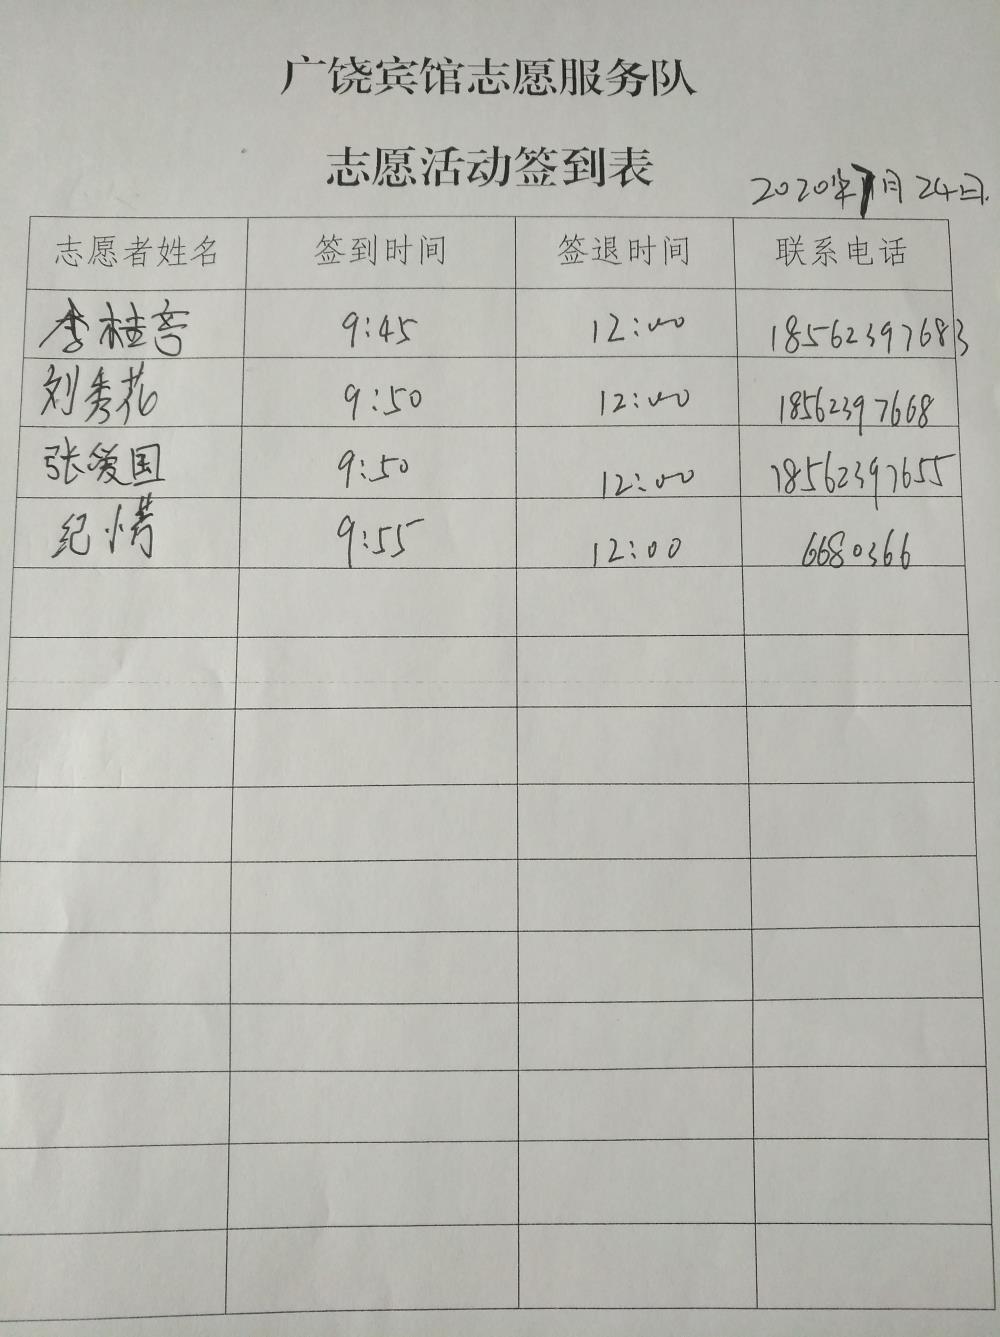 广饶宾馆志愿服务队
志愿活动签到表
2020年7月24日.
志愿者姓名 签到时间 签退时间 联系电话
李桂 9:45 12:00 18562397683
刘秀花 9:50 12:00 18562397668
张爱国 9:50 12:00 18562397655
纪 9:55 12:00 6680366